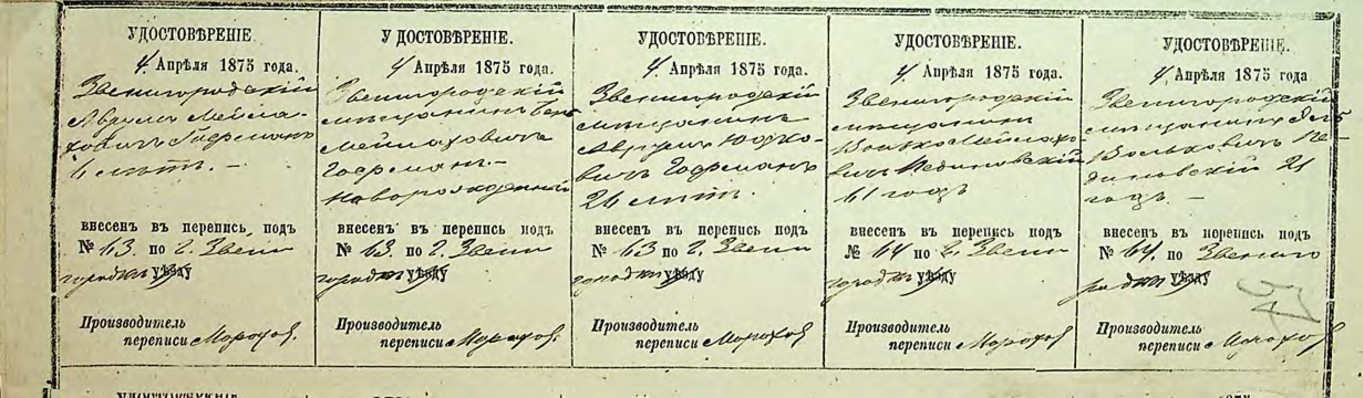 УДОСТОВѢРЕНІЕ.
4 Апрѣля 1875 года.
Звенигородскій
Аврумъ Мейла-
ховичъ Гофманъ
6 лѣтъ. —
внесенъ въ перепись подъ
№ 63. по г. Звени
городкѣ уѣзду
Производитель
переписи Морозов.
УДОСТОВѢРЕНІЕ.
4 Апрѣля 1875 года.
Звенигородскій
мѣщанинъ
Мейлаховичъ
Гофманъ. —
Новорожденный
внесенъ въ перепись подъ
№ 63. по г. Звени
городкѣ уѣзду
Производитель
переписи Морозов.
УДОСТОВѢРЕНІЕ.
4 Апрѣля 1875 года.
Звенигородскій
мѣщанинъ
Аврумъ Юдко-
вичъ Гофманъ
26 лѣтъ.
внесенъ въ перепись подъ
№ 63 по г. Звени
городкѣ уѣзду
Производитель
переписи Морозов
УДОСТОВѢРЕНІЕ.
4 Апрѣля 1875 года.
Звенигородскій
мѣщанинъ
Волько Мейлахо
вичъ Мединовскій
61 годъ
внесенъ въ перепись подъ
№ 64 по г. Звени
городкѣ уѣзду
Производитель
переписи Морозов
УДОСТОВѢРЕНІЕ.
4 Апрѣля 1875 года
Звенигородскій
мѣщанинъ
Вольковичъ Ме-
диновскій 21
годъ. —
внесенъ въ перепись подъ
№ 64. по Звениго
родкѣ уѣзду
Производитель
переписи Морозов
УДОСТОВѢРЕНІЕ
1875